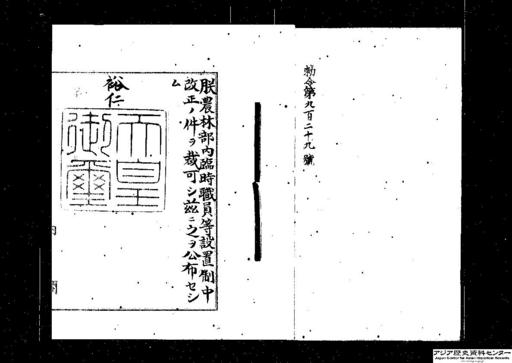 勅令第九百二十九號
朕農林部內臨時職員等設置制中
改正ノ件ヲ裁可シ茲ニ之ヲ公布セシ
ム
裕仁
天皇
御璽
アジア歴史資料センター
Japan Center for Asian Historical Records